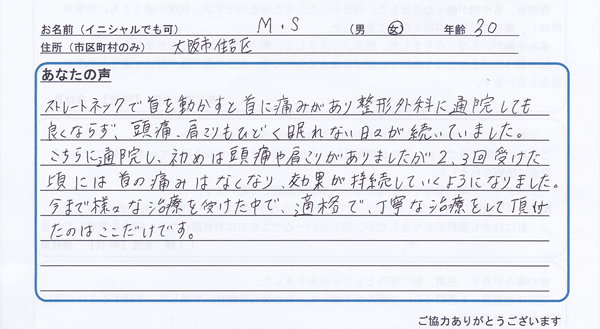 お名前（イニシャルでも可） M.S （男 女） 年齢 30
住所（市区町村のみ） 大阪市住吉区
あなたの声
ストレートネックで首を動かすと首に痛みがあり整形外科に通院しても
良くならず、頭痛、肩こりもひどく眠れない日々が続いていました。
こちらに通院し、初めは頭痛や肩こりがありましたが2、3回受けた
頃には首の痛みはなくなり、効果が持続していくようになりました。
今まで様々な治療を受けた中で、適格で、丁寧な治療をして頂け
たのはここだけです。
ご協力ありがとうございます